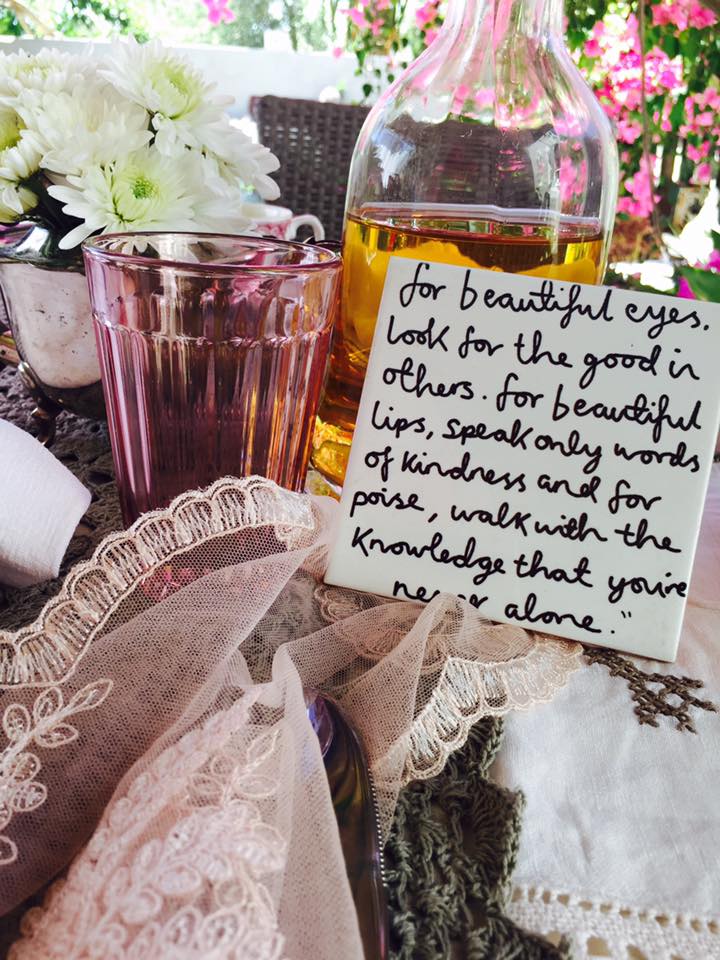 for beautiful eyes.
look for the good in
others. for beautiful
lips, speak only words
of kindness and for
poise, walk with the
knowledge that you're
never alone."